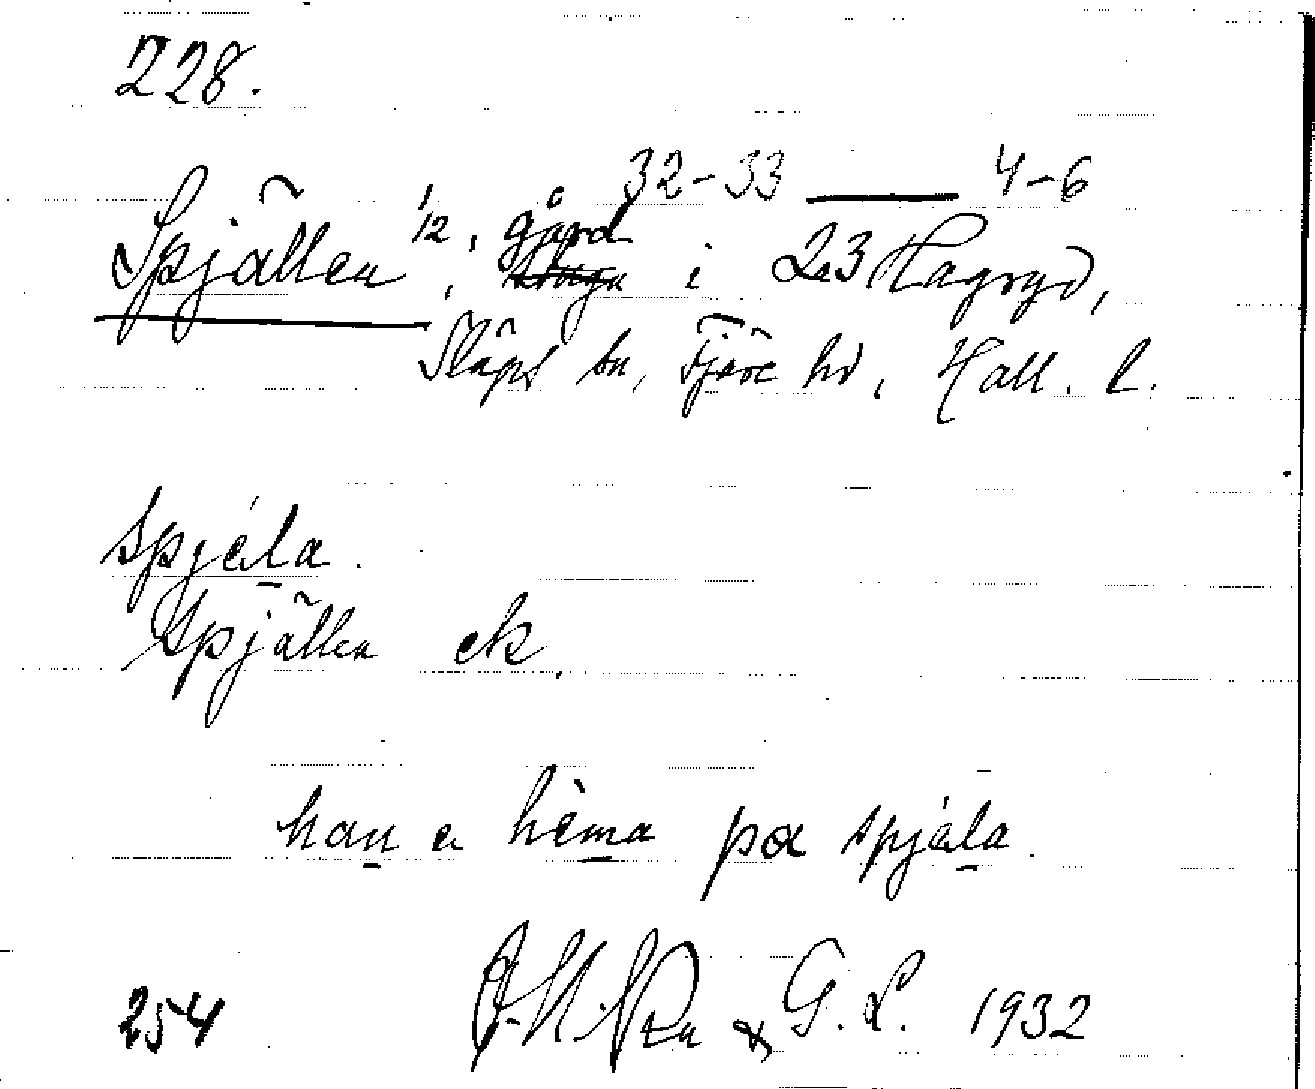 228.
32-33 — 4-6
Spjällen 1/12, gård i 2,3 Hagryd,
Släps sn, Fjäre hd, Hall. l.
spjéla.
Spjällen ek.
han e hèma pα spjéla.
254 & G. L. 1932